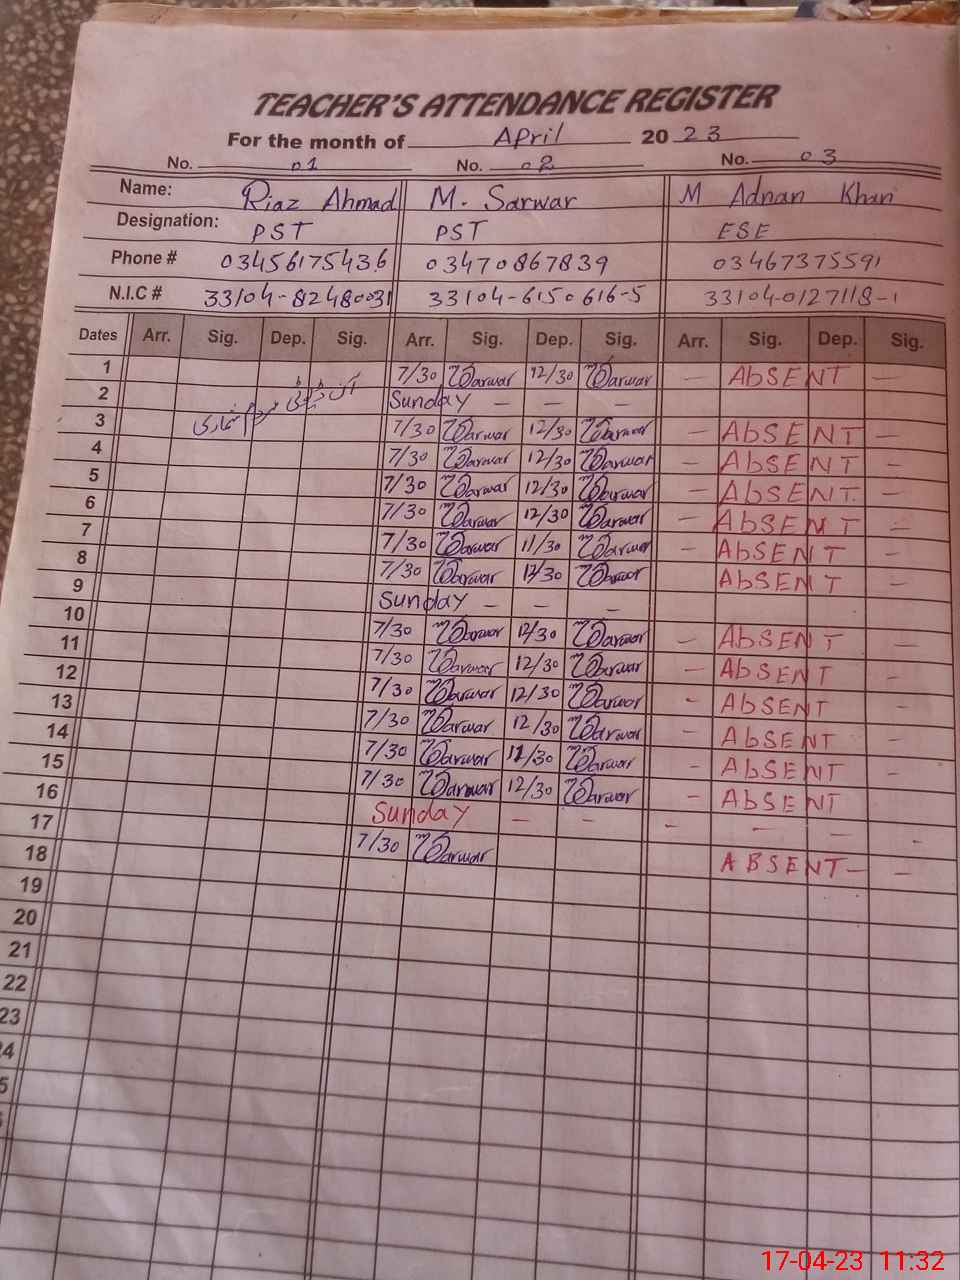 TEACHER'S ATTENDANCE REGISTER
For the month of April 20 23
No. 01 No. 02 No. 03
Name: Riaz Ahmad M. Sarwar M Adnan Khan
Designation: PST PST ESE
Phone # 03456175436 03470867839 03467375591
N.I.C # 33104-82480031 33104-6150616-5 33104-0127118-1
Dates Arr. Sig. Dep. Sig. Arr. Sig. Dep. Sig. Arr. Sig. Dep. Sig.
1 7/30 Sarwar 12/30 Sarwar — AbSENT —
2 آن ڈیوٹی مردم شماری Sunday — — —
3 7/30 Sarwar 12/30 Sarwar — AbSENT —
4 7/30 Sarwar 12/30 Sarwar — AbSENT —
5 7/30 Sarwar 12/30 Sarwar — AbSENT —
6 7/30 Sarwar 12/30 Sarwar — AbSENT —
7 7/30 Sarwar 11/30 Sarwar — AbSENT —
8 7/30 Sarwar 12/30 Sarwar — AbSENT —
9 Sunday — — —
10 7/30 Sarwar 12/30 Sarwar — AbSENT —
11 7/30 Sarwar 12/30 Sarwar — AbSENT —
12 7/30 Sarwar 12/30 Sarwar — AbSENT —
13 7/30 Sarwar 12/30 Sarwar — AbSENT —
14 7/30 Sarwar 11/30 Sarwar — AbSENT —
15 7/30 Sarwar 12/30 Sarwar — AbSENT —
16 Sunday — — — — — —
17 7/30 Sarwar ABSENT — —
18
19
20
21
22
23
17-04-23 11:32